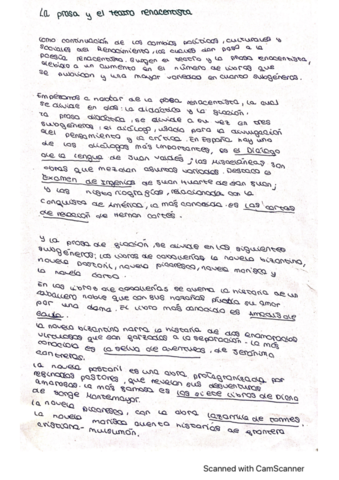 La prosa y el teatro renacentista
Como continuación de los cambios políticos, culturales y
sociales del Renacimiento, los cuales dan paso a la
poesía renacentista. Surgen el teatro y la prosa renacentista,
debido a un aumento en el número de libros que
se publican y una mayor variedad en cuanto subgéneros.
Empezamos a hablar de la prosa renacentista, la cual
se divide en dos: la didáctica y la ficción.
La prosa didáctica, se divide a su vez en tres
subgéneros: el diálogo, usado para la divulgación
del pensamiento y la crítica. En España hay uno
de los diálogos más importantes, es el Diálogo
de la lengua de Juan Valdés; las misceláneas son
obras que mezclan asuntos variados. Destaca el
Examen de ingenios de Juan Huarte de San Juan;
y las historiográficas, relacionada con la
conquista de América, la más conocida es las cartas
de relación de Hernán Cortés.
Y la prosa de ficción, se divide en los siguientes
subgéneros: los libros de caballerías la novela bizantina,
novela pastoril, novela picaresca, novela morisca y
la novela corta.
En los libros de caballerías se cuenta la historia de un
caballero noble que con sus hazañas su amor
por una dama. El libro más conocido es Amadís de
Gaula.
La novela bizantina narra la historia de dos enamorados
virtuosos que son forzados a la separación. La más
conocida es la selva de aventuras, de Jerónimo
Contreras.
La novela pastoril es una obra protagonizada por
refinados pastores, que revelan sus desventuras
amorosas. La más famosa es los siete libros de Diana
de Jorge Montemayor.
La novela picaresca, con la obra Lazarillo de Tormes
La novela morisca cuenta historias de frontera
cristiano-musulmán.
Scanned with CamScanner